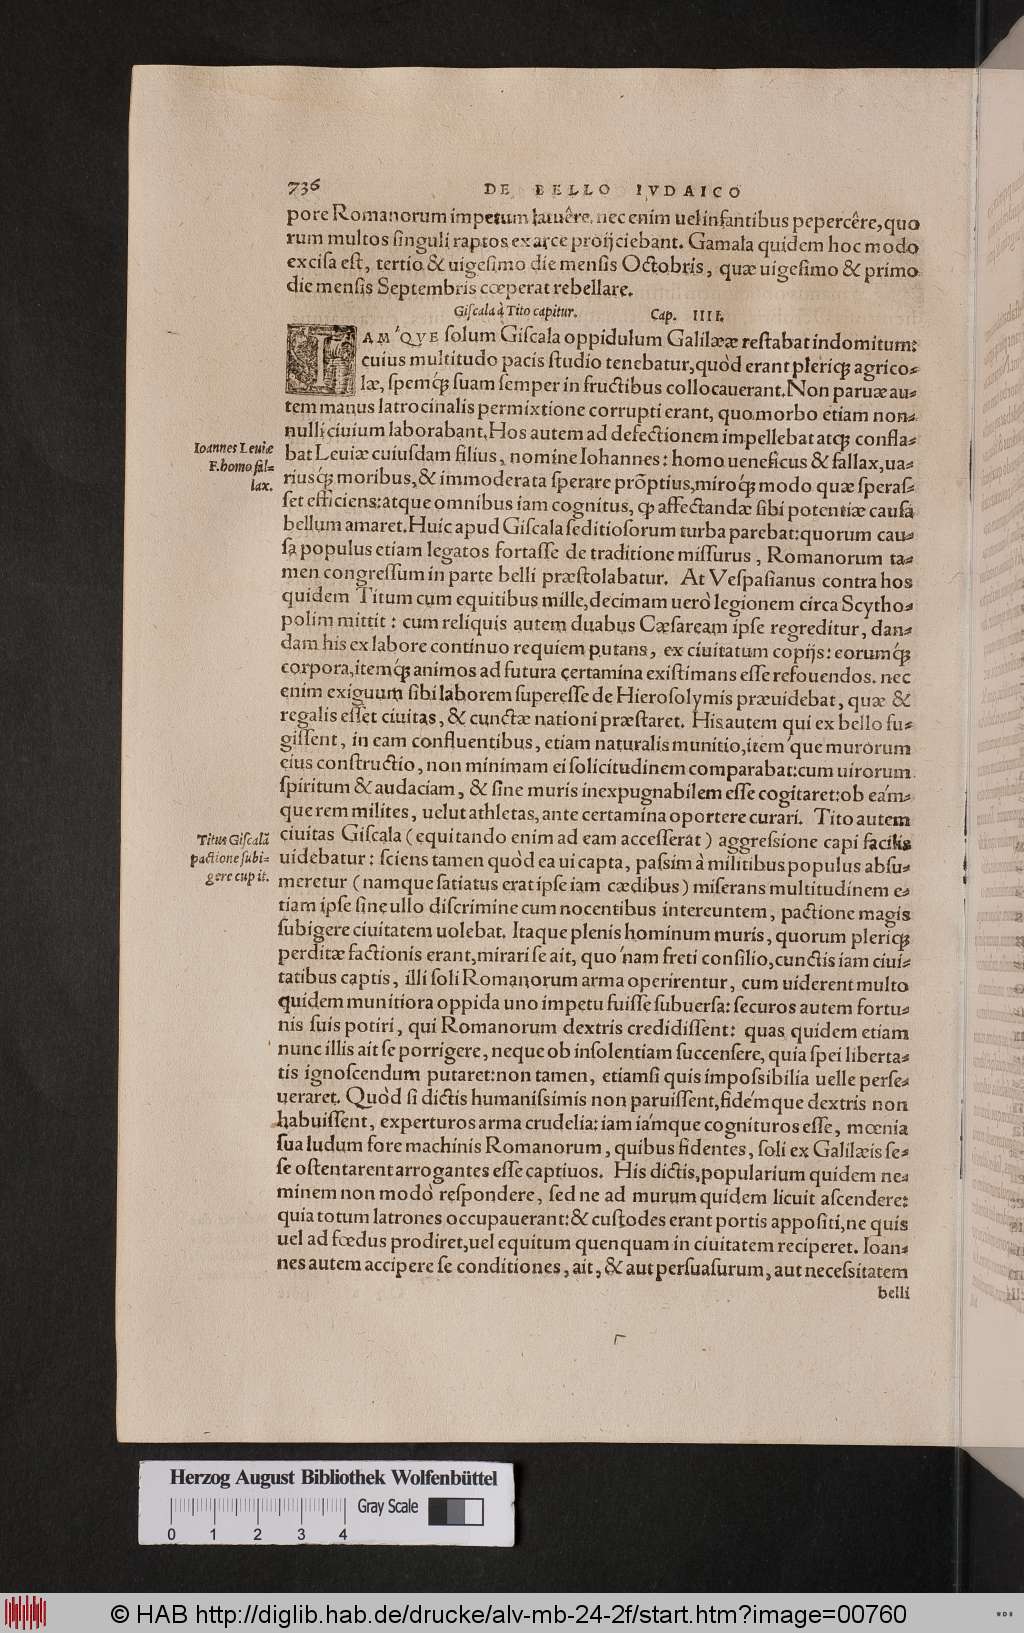 736
DE BELLO IVDAICO
pore Romanorum impetum latuêre. nec enim uel infantibus pepercêre, quo
rum multos ſinguli raptos ex arce proijciebant. Gamala quidem hoc modo
exciſa eſt, tertio & uigeſimo die menſis Octobris, quæ uigeſimo & primo
die menſis Septembris cœperat rebellare.
Giſcala à Tito capitur. Cap. IIII.
IAM'QVE ſolum Giſcala oppidulum Galilææ reſtabat indomitum:
cuius multitudo pacis ſtudio tenebatur, quòd erant pleriqꝫ agrico-
læ, ſpemqꝫ́ ſuam ſemper in fructibus collocauerant. Non paruæ au-
tem manus latrocinalis permixtione corrupti erant, quo morbo etiam non-
nulli ciuium laborabant. Hos autem ad defectionem impellebat atqꝫ confla-
Ioannes Leuiæ
F. homo fal-
lax.
bat Leuiæ cuiuſdam filius, nomine Iohannes: homo ueneficus & fallax, ua-
riusqꝫ́ moribus, & immoderata ſperare prõptius, miroqꝫ́ modo quæ ſperaſ-
ſet efficiens: atque omnibus iam cognitus, ꝙ affectandæ ſibi potentiæ cauſa
bellum amaret. Huic apud Giſcala ſeditioſorum turba parebat: quorum cau-
ſa populus etiam legatos fortaſſe de traditione miſſurus, Romanorum ta-
men congreſſum in parte belli præſtolabatur. At Veſpaſianus contra hos
quidem Titum cum equitibus mille, decimam uerò legionem circa Scytho-
polim mittit: cum reliquis autem duabus Cæſaream ipſe regreditur, dan-
dam his ex labore continuo requiem putans, ex ciuitatum copijs: eorumqꝫ́
corpora, itemqꝫ́ animos ad futura certamina exiſtimans eſſe refouendos. nec
enim exiguum ſibi laborem ſupereſſe de Hieroſolymis præuidebat, quæ &
regalis eſſet ciuitas, & cunctæ nationi præſtaret. His autem qui ex bello fu-
giſſent, in eam confluentibus, etiam naturalis munitio, item'que murorum
eius conſtructio, non minimam ei ſolicitudinem comparabat: cum uirorum
ſpiritum & audaciam, & ſine muris inexpugnabilem eſſe cogitaret: ob eám-
que rem milites, uelut athletas, ante certamina oportere curari. Tito autem
Titus Giſcalã
pactione ſubi-
gere cupit.
ciuitas Giſcala (equitando enim ad eam acceſſerat) aggreſsione capi facilis
uidebatur: ſciens tamen quòd ea ui capta, paſsim à militibus populus abſu-
meretur (namque ſatiatus erat ipſe iam cædibus) miſerans multitudinem e-
tiam ipſe ſine ullo diſcrimine cum nocentibus intereuntem, pactione magis
ſubigere ciuitatem uolebat. Itaque plenis hominum muris, quorum pleriqꝫ
perditæ factionis erant, mirari ſe ait, quo'nam freti conſilio, cunctis iam ciui-
tatibus captis, illi ſoli Romanorum arma operirentur, cum uiderent multo
quidem munitiora oppida uno impetu fuiſſe ſubuerſa: ſecuros autem fortu-
nis ſuis potiri, qui Romanorum dextris credidiſſent: quas quidem etiam
nunc illis ait ſe porrigere, neque ob inſolentiam ſuccenſere, quia ſpei liberta-
tis ignoſcendum putaret: non tamen, etiamſi quis impoſsibilia uelle perſe-
ueraret. Quòd ſi dictis humaniſsimis non paruiſſent, fidémque dextris non
habuiſſent, experturos arma crudelia: iam iámque cognituros eſſe, mœnia
ſua ludum fore machinis Romanorum, quibus fidentes, ſoli ex Galilæis ſe-
ſe oſtentarent arrogantes eſſe captiuos. His dictis, popularium quidem ne-
minem non modò reſpondere, ſed ne ad murum quidem licuit aſcendere:
quia totum latrones occupauerant: & cuſtodes erant portis appoſiti, ne quis
uel ad fœdus prodiret, uel equitum quenquam in ciuitatem reciperet. Ioan-
nes autem accipere ſe conditiones, ait, & aut perſuaſurum, aut neceſsitatem
belli
Herzog August Bibliothek Wolfenbüttel
Gray Scale
0 1 2 3 4
© HAB http://diglib.hab.de/drucke/alv-mb-24-2f/start.htm?image=00760